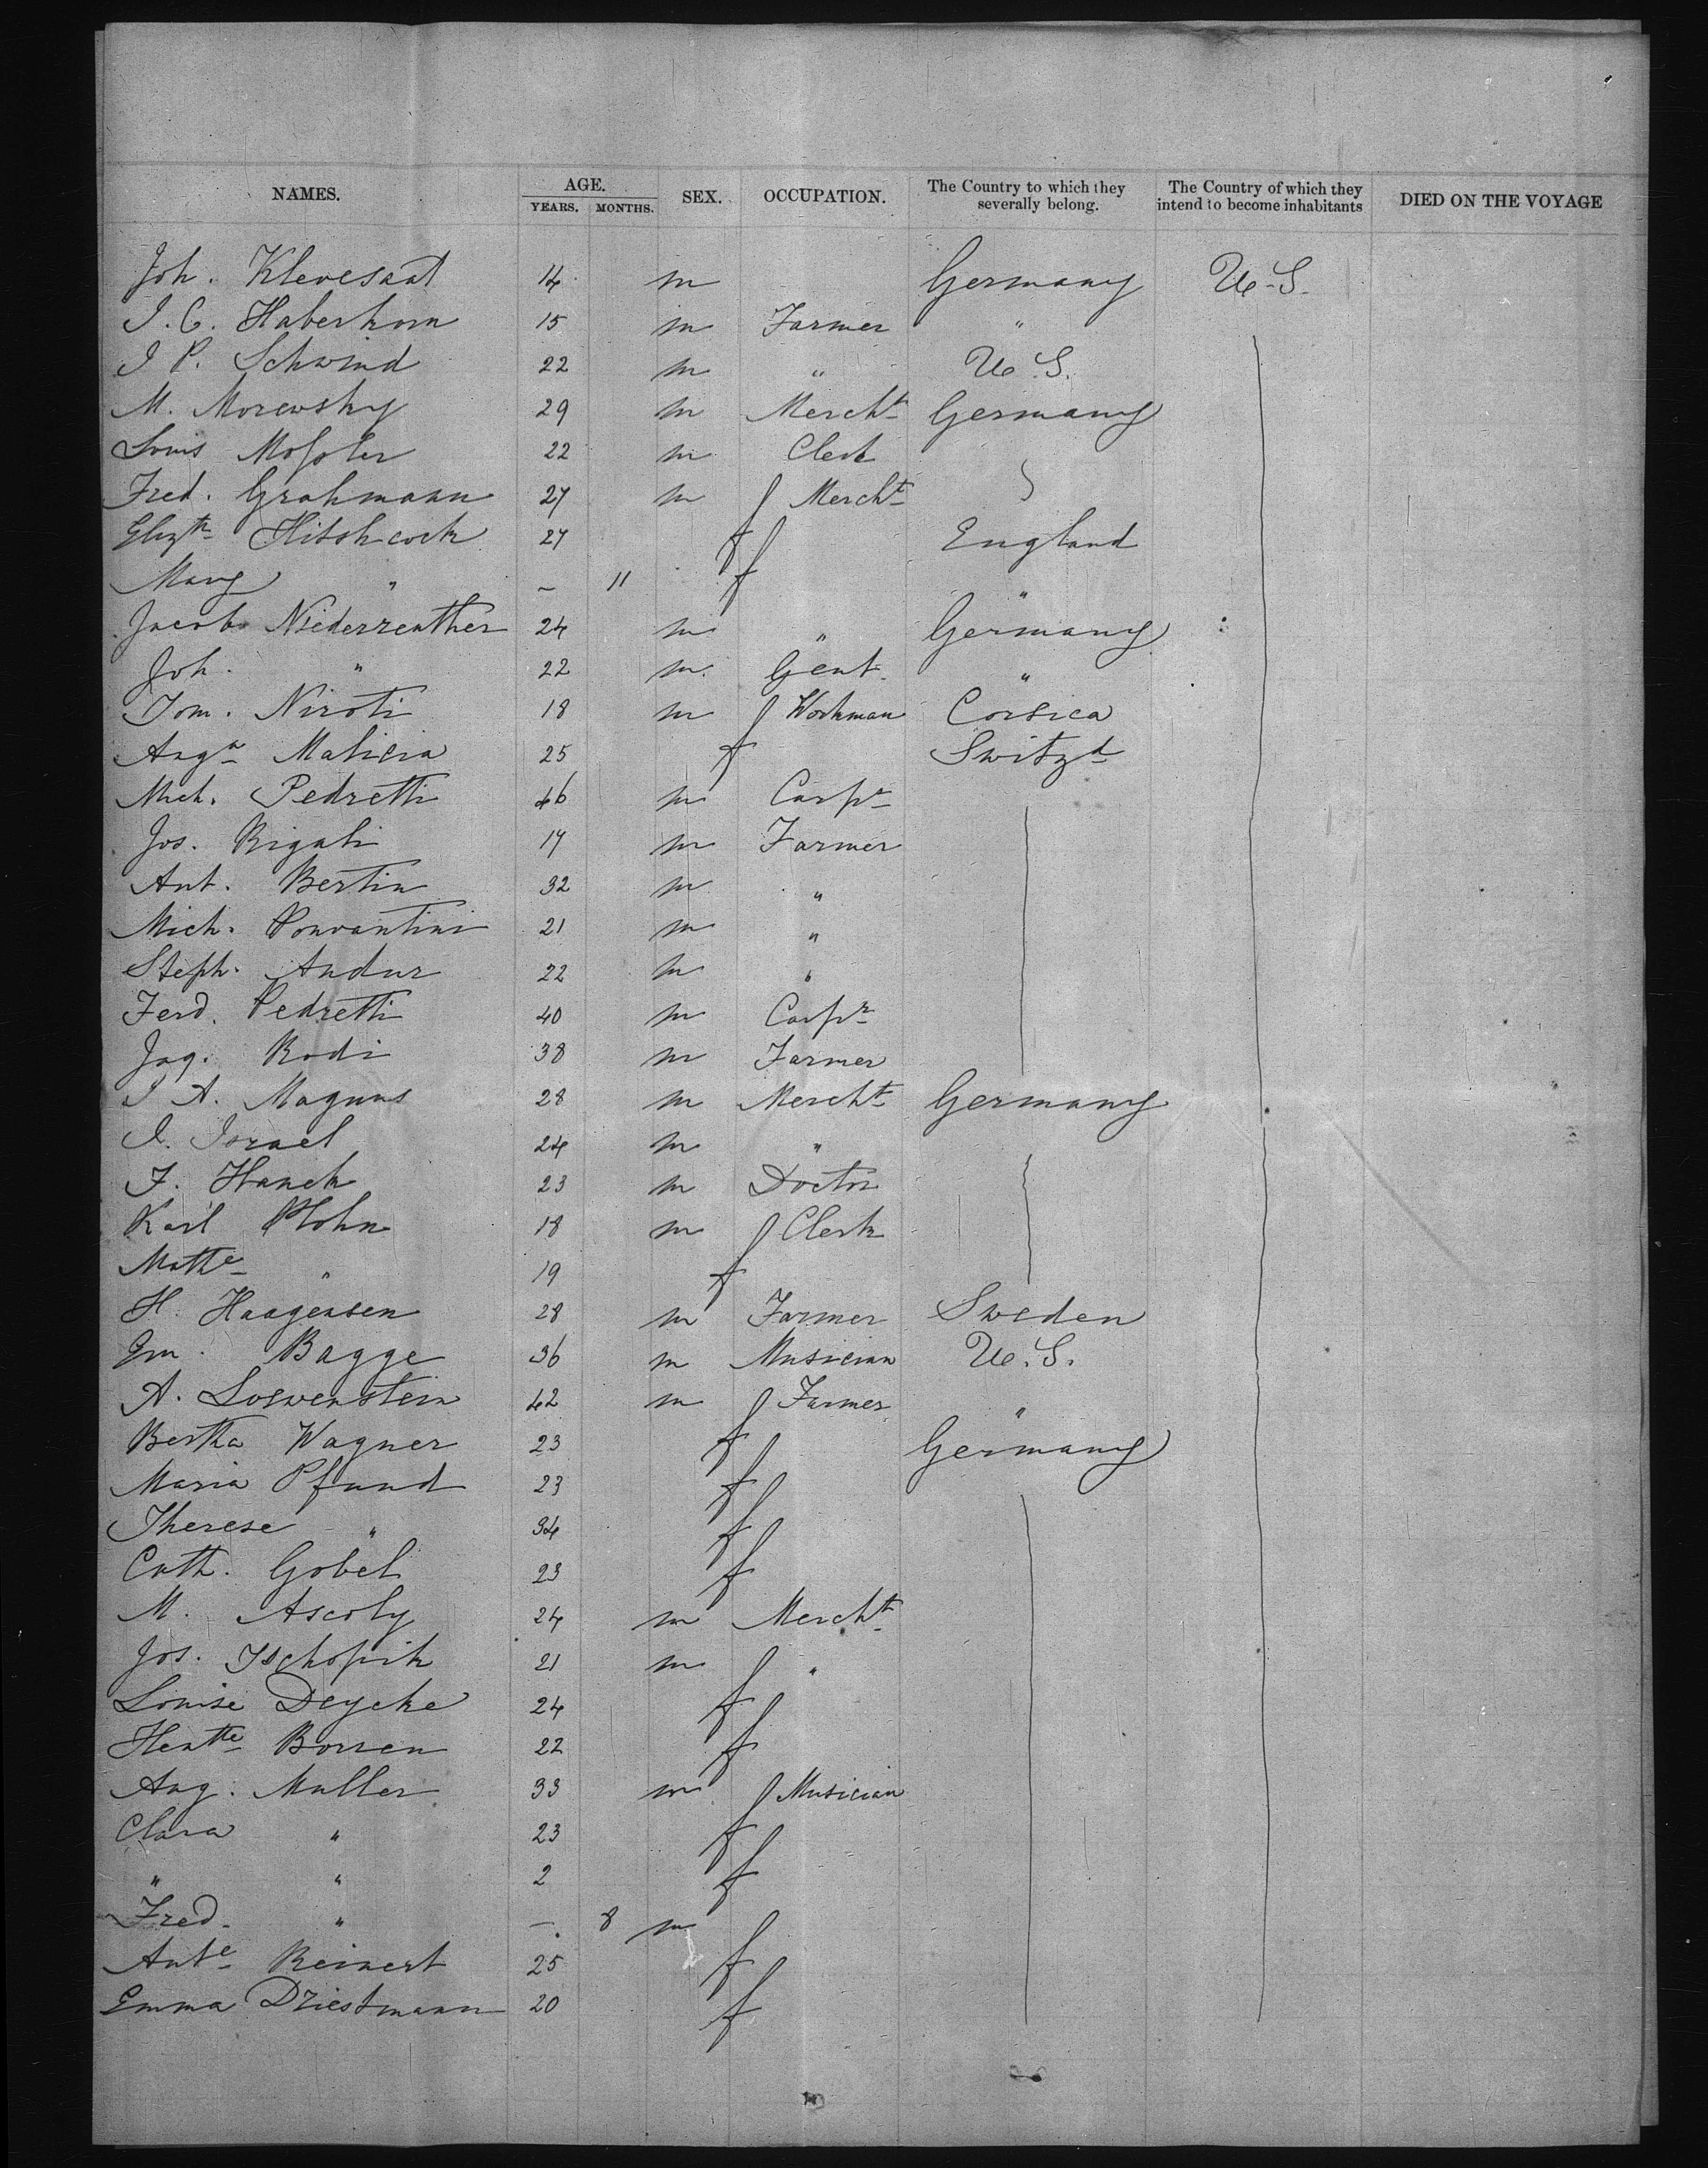 NAMES. AGE. YEARS. MONTHS. SEX. OCCUPATION. The Country to which they severally belong. The Country of which they intend to become inhabitants DIED ON THE VOYAGE
Joh. Klevesaat 14 m Germany U.S.
J. C. Haberkorn 15 m Farmer "
J P. Schwind 22 m " U.S.
M. Morewsky 29 m Mercht Germany
Louis Mossler 22 m Clerk
Fred. Grahmann 27 m Mercht
Elizth Hitshcock 27 f England
Mary " - 11 f "
Jacob Niederreuther 24 m " Germany
Joh. " 22 m. Gent. "
Dom. Niroti 18 m Workman Corsica
Auga Malicia 25 f Switzd
Mich. Pedretti 46 m Carpr
Jos. Rigali 17 m Farmer
Ant. Bertin 32 m "
Mich. 21 m "
Steph. Andur 22 m "
Ferd. Pedretti 40 m Carpr
Jaq. Rodi 38 m Farmer
J A. Magnus 28 m Mercht Germany
J. Israel 24 m "
F. Hanck 23 m Doctor
Karl Plohn 18 m Clerk
Mathe " 19 f
H. Haagensen 28 m Farmer Sweden
Bagge 36 m Musician U.S.
A. Loewenstein 42 m Farmer "
Bertha Wagner 23 f Germany
Maria Pfund 23 f
Therese " 34 f
Cath. Gobel 23 f
M. Ascoly 24 m Mercht
Jos. Tschopik 21 m "
Louise Deycke 24 f
Hentte Borren 22 f
Aug. Muller 33 m Musician
Clara " 23 f
" " 2 f
Fred. " - 8 m
Ante Reinert 25 f
Emma Driestmann 20 f